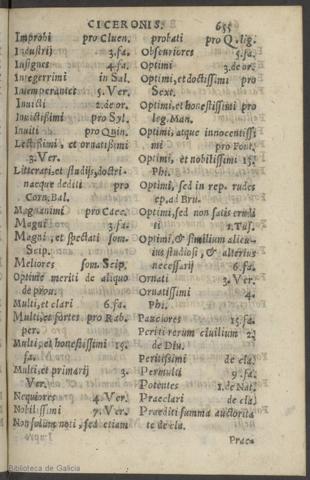 CICERONIS. 655
Improbi pro Cluen.
Industrij 3.fa.
Insignes 4.fa.
Integerrimi in Sal.
Intemperantes 5.Ver.
Inuicti 2.de or.
Inuictissimi pro Syl.
Inuiti pro Quin.
Lectissimi, et ornatissimi
3.Ver.
Litterari, et studijs, doctri-
naeque dediti pro
Corn. Bal.
Magnanimi pro Caec.
Magni 3.fa.
Magni, et spectati som.
Scip.
Meliores som. Scip.
Optime meriti de aliquo
de prou.
Multi, et clari 6.fa.
Multi, et fortes pro Rab.
per.
Multi, et honestissimi 15.
fa.
Multi, et primarij 3.
Ver.
Nequiores 4.Ver.
Nobilissimi 7.Ver.
Non solùm noti, sed etiam
probati pro Q. lig.
Obscuriores 5.fa.
Optimi 3.de or.
Optimi, et doctissimi pro
Sext.
Optimi, et honestissimi pro
leg. Man.
Optimi, atque innocentissi
mi pro Font.
Optimi, et nobilissimi 15.
Phi.
Optimi, sed in rep. rudes
ep. ad Bru.
Optimi, sed non satis erudi
ti 1.Tus.
Optimi, & similium alicu-
ius studiosi, & alterius
necessarij 6.fa.
Ornati 3.Ver.
Ornatissimi 4.
Phi.
Pauciores 15.fa.
Periti rerum ciuilium 2.
de Diu.
Peritissimi de cla.
Permulti 9.fa.
Potentes 1.de Nat.
Praeclari de cla.
Praediti summa auctorita
te de cla.
Praee
Biblioteca de Galicia